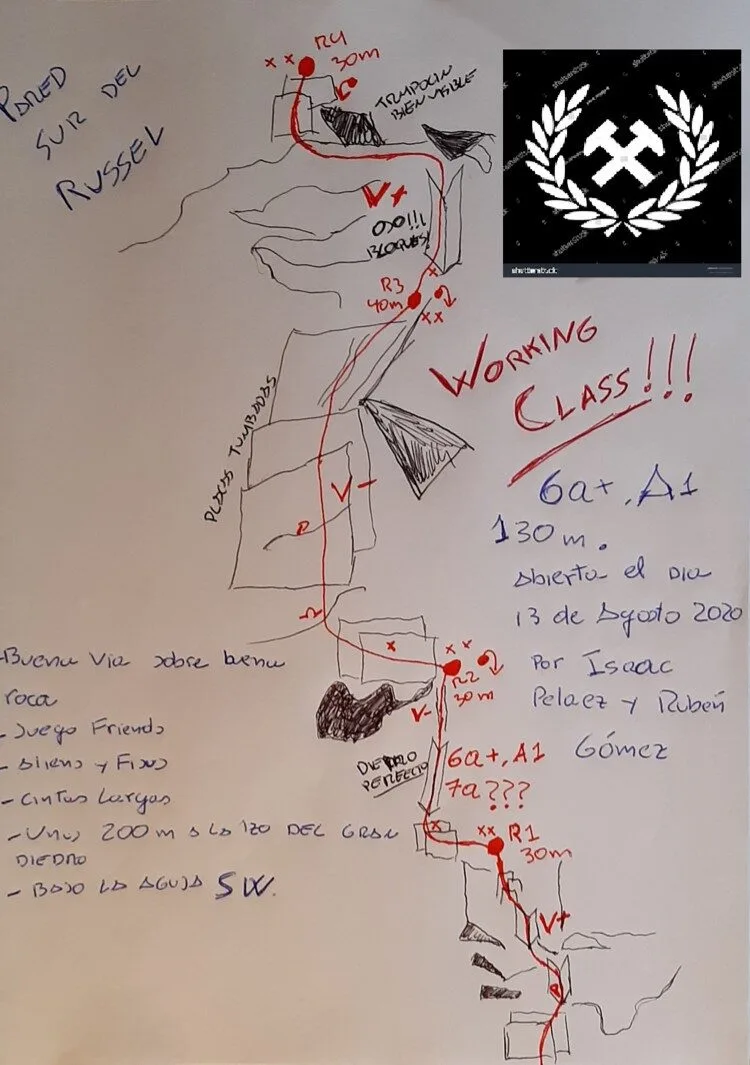 PARED
SUR DEL
RUSSEL
x x R4
30m
TRAMPOLIN
BIEN VISIBLE
V+
OJO!!!
BLOQUES!
x
R3
40m
xx
PLACAS TUMBADAS
V-
WORKING
CLASS!!!
6a+, A1
130 m.
abierta el dia
13 de Agosto 2020
Por Isaac
Pelaez y Rubén
Gómez
x
x x
R2
30m
V-
DIEDRO
PERFECTO
6a+, A1
7a???
x
xx R1
30m
V+
-Buena Via sobre buena
roca
- Juego Friends
- Aliens y Fisus
- Cintas Largas
- Unos 200 m A LA IZQ DEL GRAN
DIEDRO
- BAJO LA AGUJA SW.
shutterstock